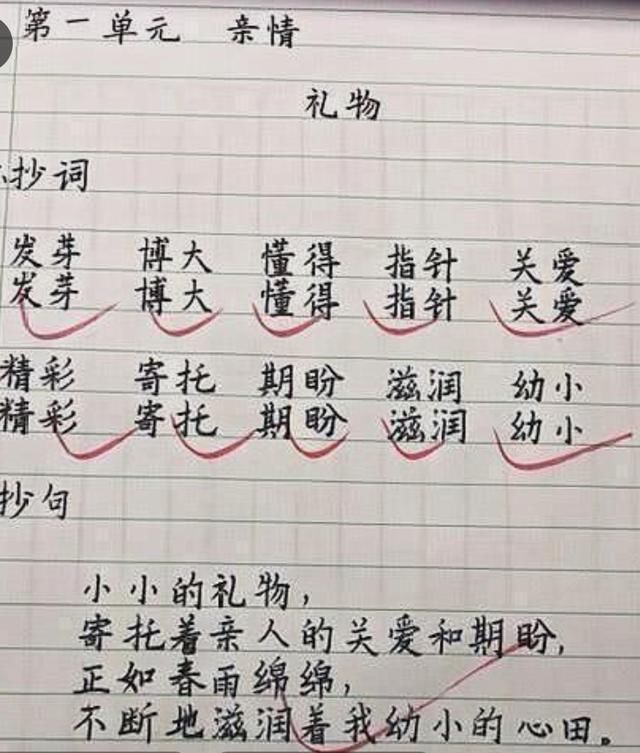 第一单元 亲情
礼物
抄词
发芽 博大 懂得 指针 关爱
发芽 博大 懂得 指针 关爱
精彩 寄托 期盼 滋润 幼小
精彩 寄托 期盼 滋润 幼小
抄句
小小的礼物，
寄托着亲人的关爱和期盼，
正如春雨绵绵，
不断地滋润着我幼小的心田。